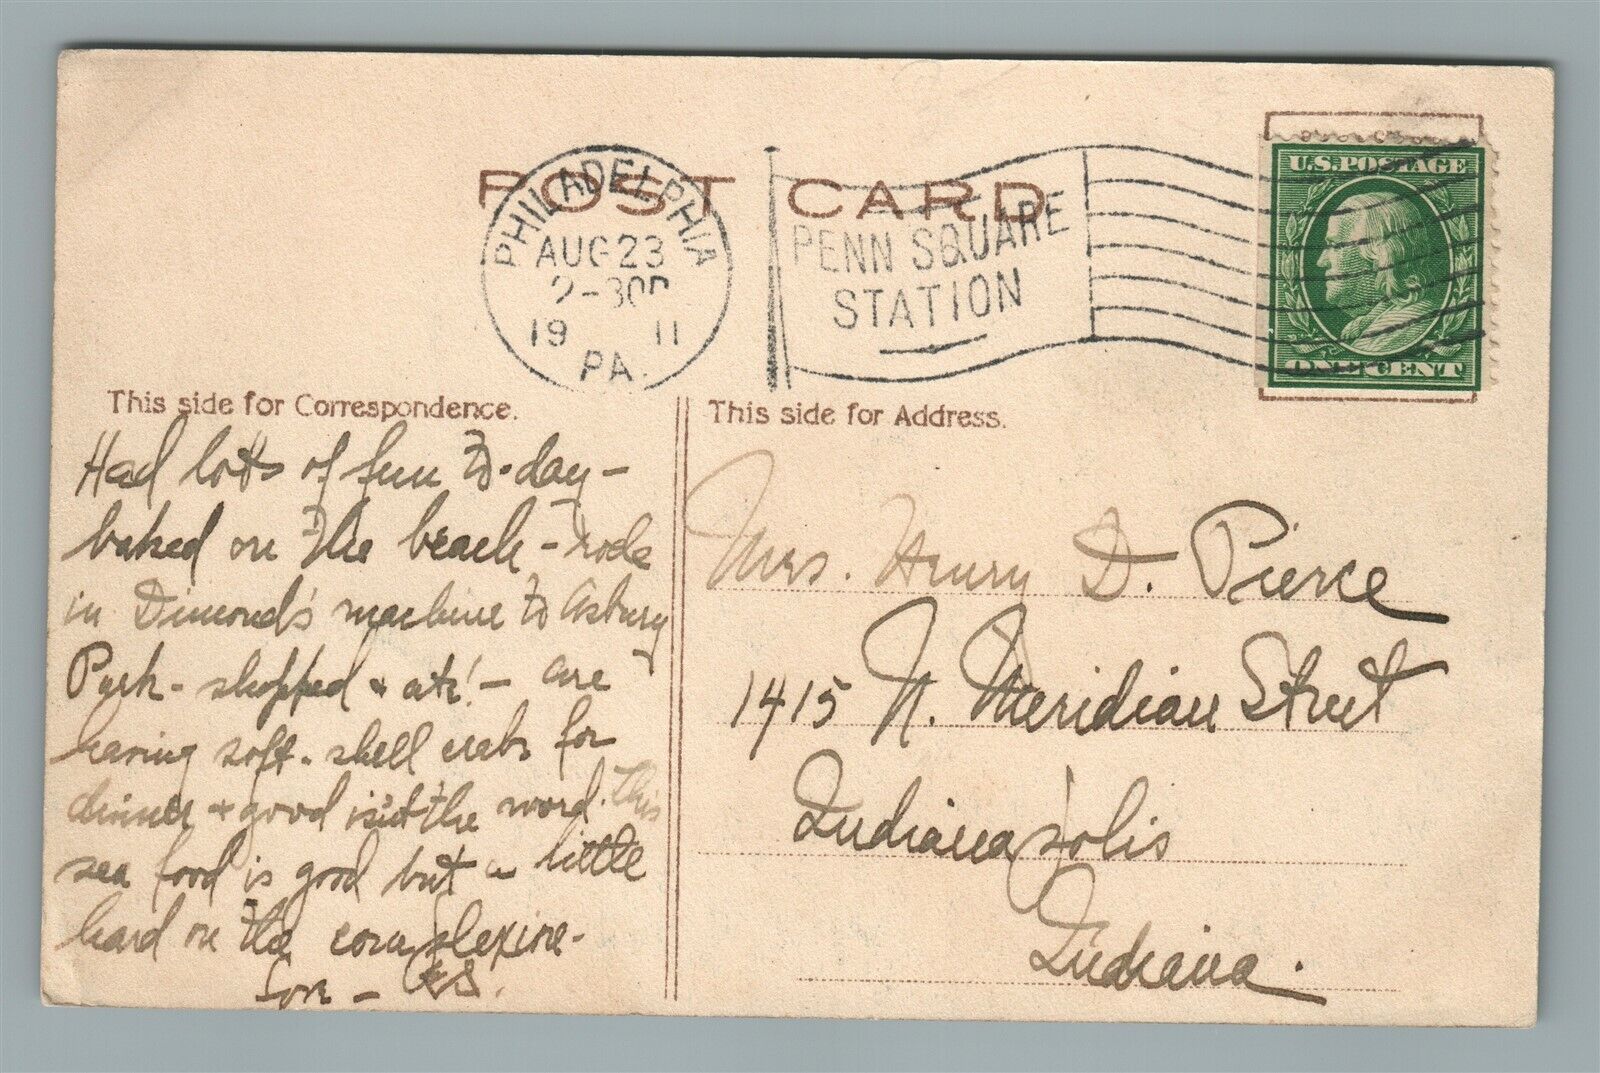 POST CARD
PHILADELPHIA
AUG 23
2-30P
19 11
PA.
PENN SQUARE
STATION
U.S. POSTAGE
ONE CENT
This side for Correspondence.
Had lotts of fun to-day –
baked on the beach – rode
in Dimond's machine to Asbury
Park – shopped + ate! – are
having soft-shell crabs for
dinner + good isn't the word. This
sea food is good but a little
hard on the complexion –
This side for Address.
Mrs. Henry D. Pierce
1415 N. Meridian Street
Indianapolis
Indiana.